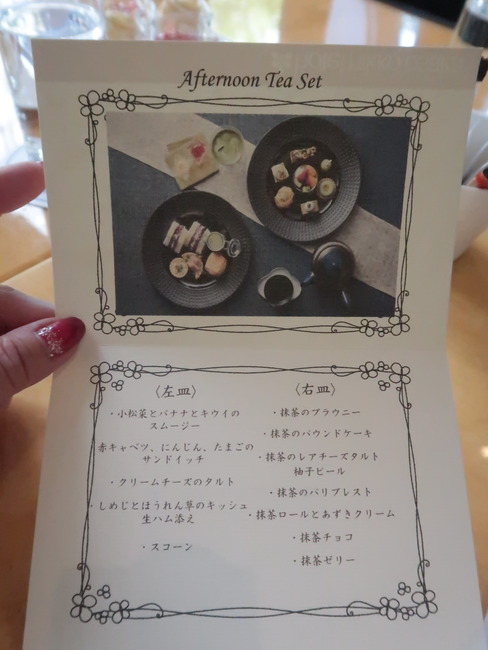 Afternoon Tea Set
〈左皿〉
・小松菜とバナナとキウイの
スムージー
赤キャベツ、にんじん、たまごの
サンドイッチ
・クリームチーズのタルト
・しめじとほうれん草のキッシュ
生ハム添え
・スコーン
〈右皿〉
・抹茶のブラウニー
・抹茶のパウンドケーキ
・抹茶のレアチーズタルト
柚子ピール
・抹茶のパリブレスト
・抹茶ロールとあずきクリーム
・抹茶チョコ
・抹茶ゼリー